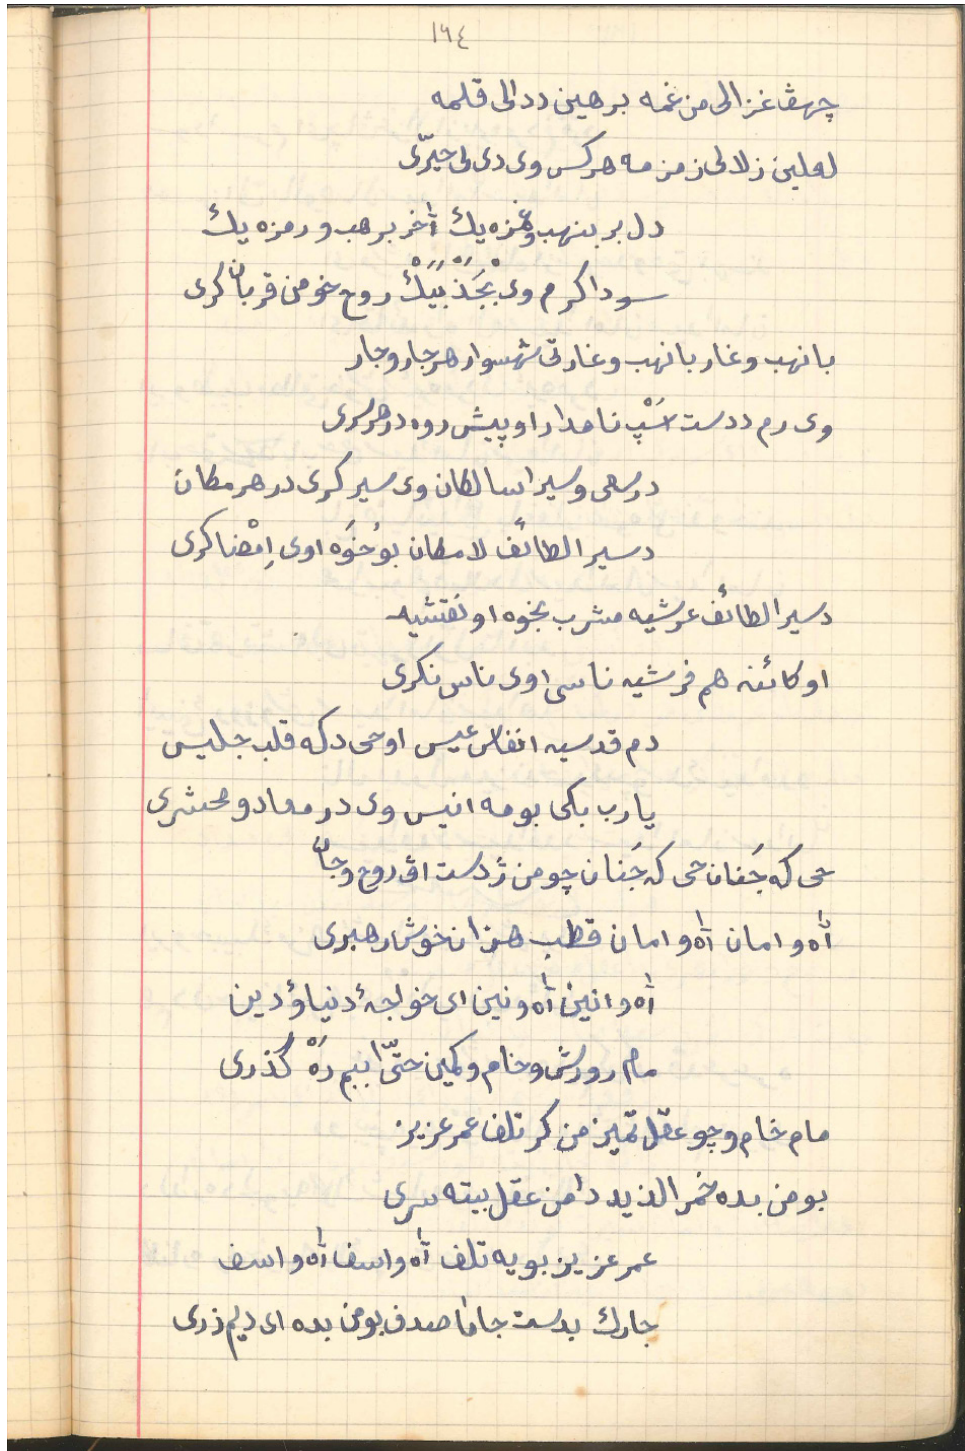 ١٦٤
چهڤ غزالی من غمه برهین ددالی قلمه
لعلین زلالی زمزمه هرکس وی دی لی حیرّی
دل بر بنهب وغمزه یك آخر برهب ورمزه یك
سوداکرم وی بْجَذْبَیَكْ روح خو من قربان کری
بانهب وغار بانهب وغارتی شهسوار هر جار وجار
وی رم ددست اسْپ نامدار او پیش روه در هر سری
در سعی وسیرا سالکان وی سیر کری در هر مکان
دسیر الطائف لامکان بو خوَه اوی اِمْضا کری
دسیر الطائف عرشیه مشرب بخوه او نقتشیه
او کائنه هم فرشیه ناسی اوی ناس نکری
دم قدسیه انفاس عیس او حی دکه قلب جلیس
یارب بکی بو مه انیس وی در معاد و محشری
حی که جَنان حی که جَنان چو من ژ دست اڤ روح وجان
آه و امان آه و امان قطب هزان خوش رهبری
آه و انین آه ونین ای خواجۀ دنیا ؤ دین
مام روورش وخام وکمین حتّا ببم رَهْ گذری
مام خام و چو عقل تمیز من کر تلف عمر عزیز
بو من بده خمر الذید دا من عقل بیته سری
عمر عزیز بویه تلف آه واسف آه واسف
جارك بدست جاما صدف بو من بده ای دلیم زری